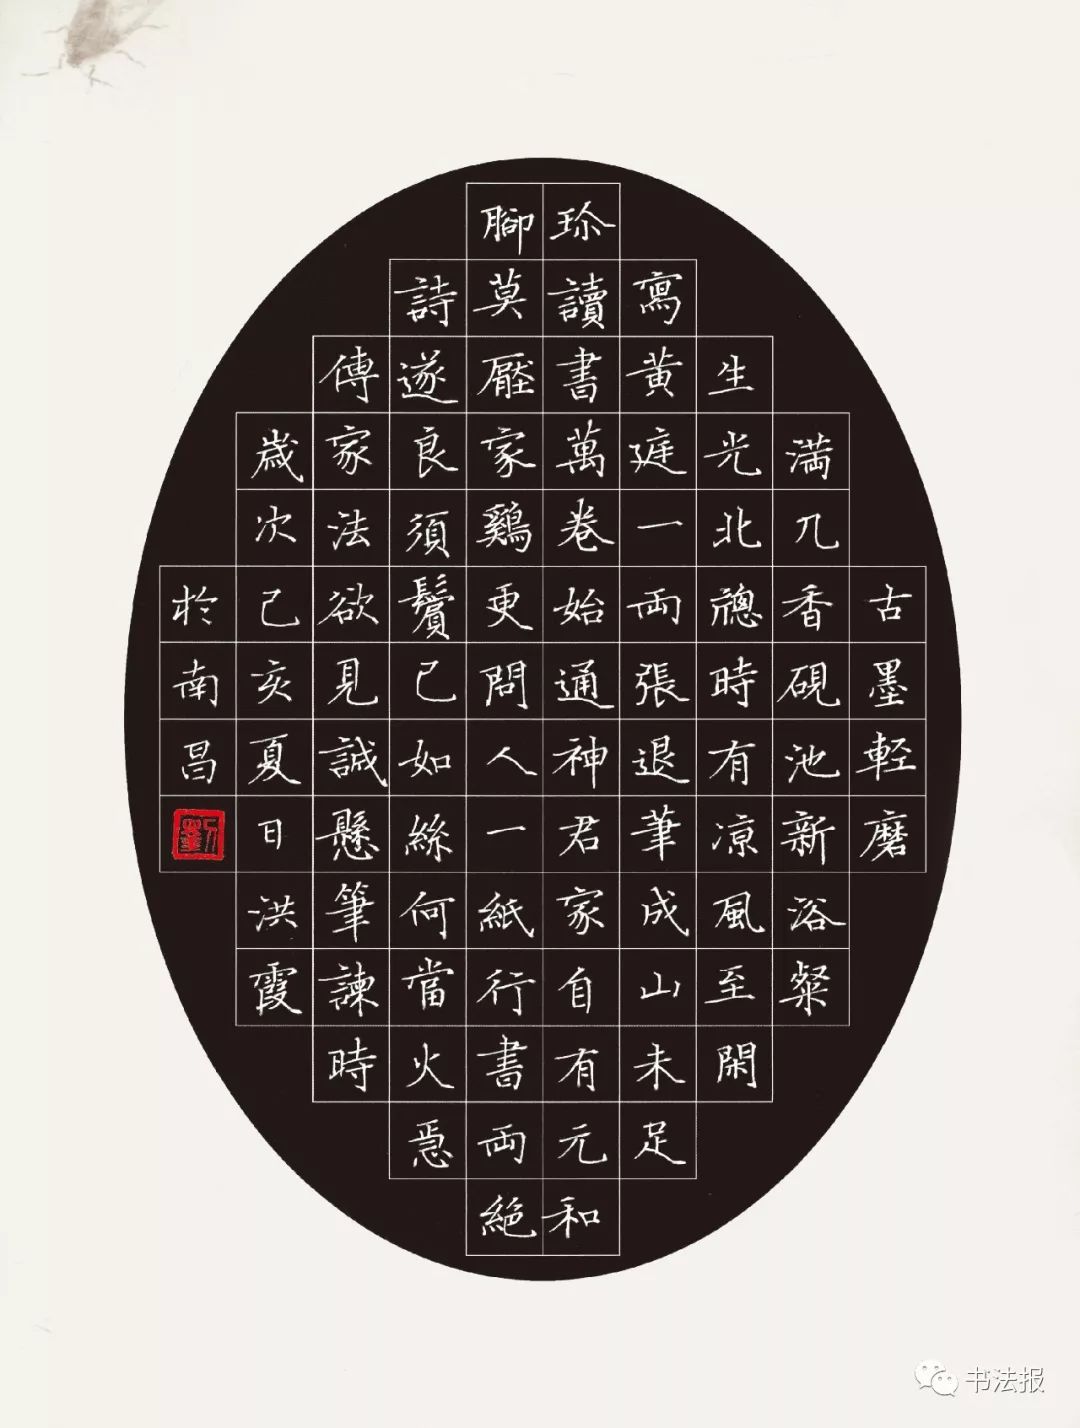 古墨輕磨
滿几香硯池新浴粲
生光北牕時有涼風至閑
寫黃庭一兩張退筆成山未足
珎讀書萬卷始通神君家自有元和
腳莫厭家鷄更問人一紙行書兩絕
詩遂良須鬢已如絲何當火急
傳家法欲見誠懸筆諫時
歲次己亥夏日洪霞
於南昌
劉
书法报